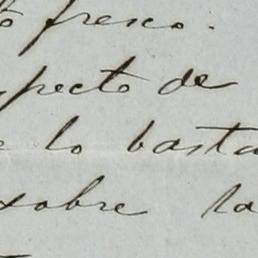 fresco.
specto de
lo basta
sobre la